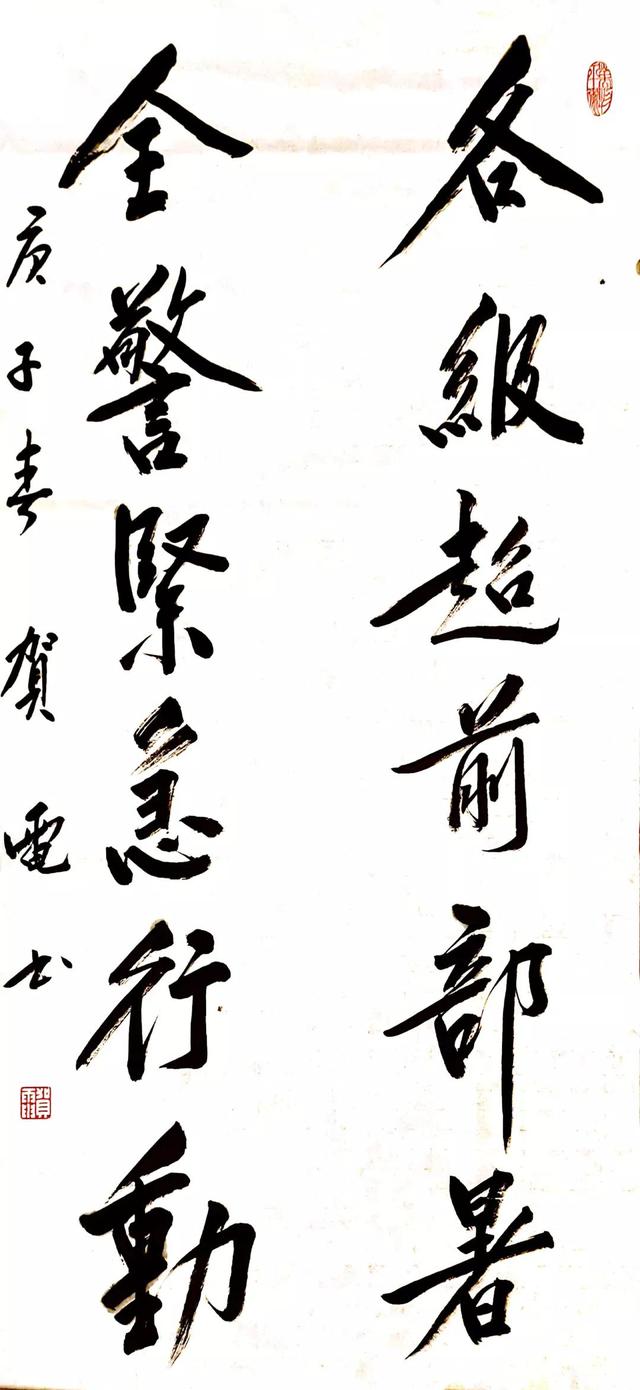 各級超前部暑
全警緊急行動
庚子春賀電书